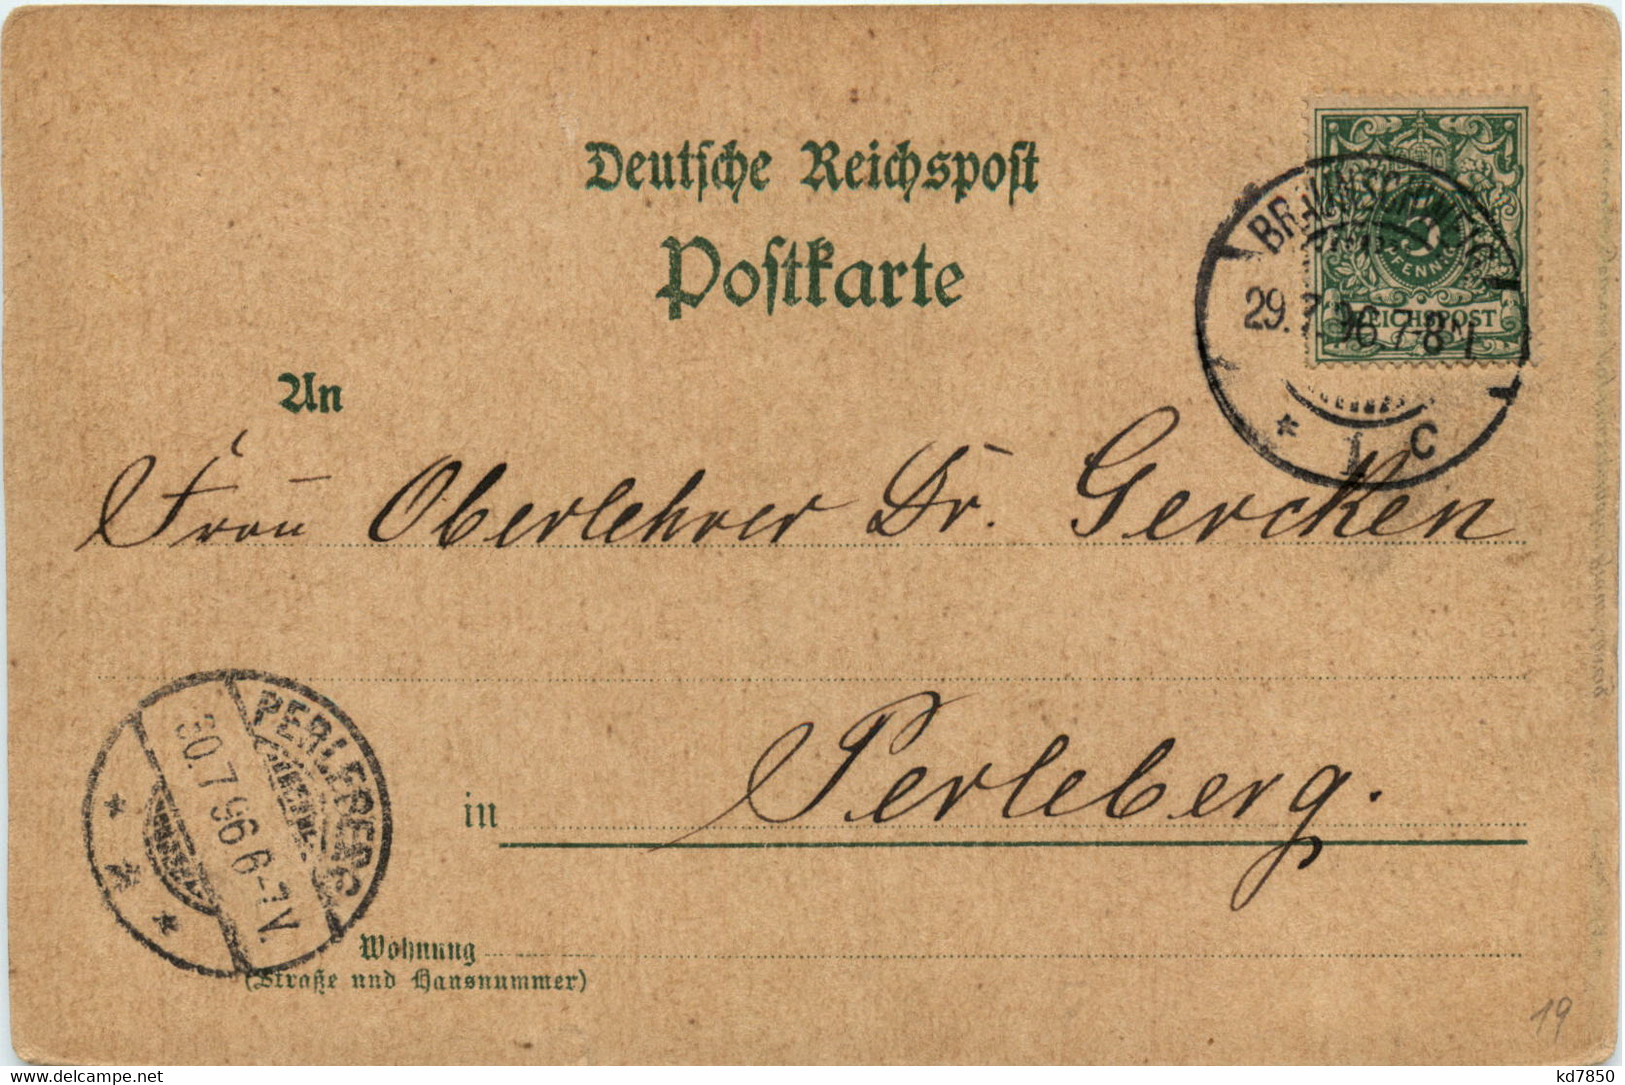 Deutsche Reichspost
Postkarte
BRAUNSCHWEIG
29.7.96.7-8N
* 1 C
5
PFENNIG
REICHSPOST
An
Frau Oberlehrer Dr. Gercken
in Perleberg.
PERLEBERG
30.7.96 6-7V.
* * *
Wohnung
(Straße und Hausnummer)
19
www.delcampe.net
kd7850